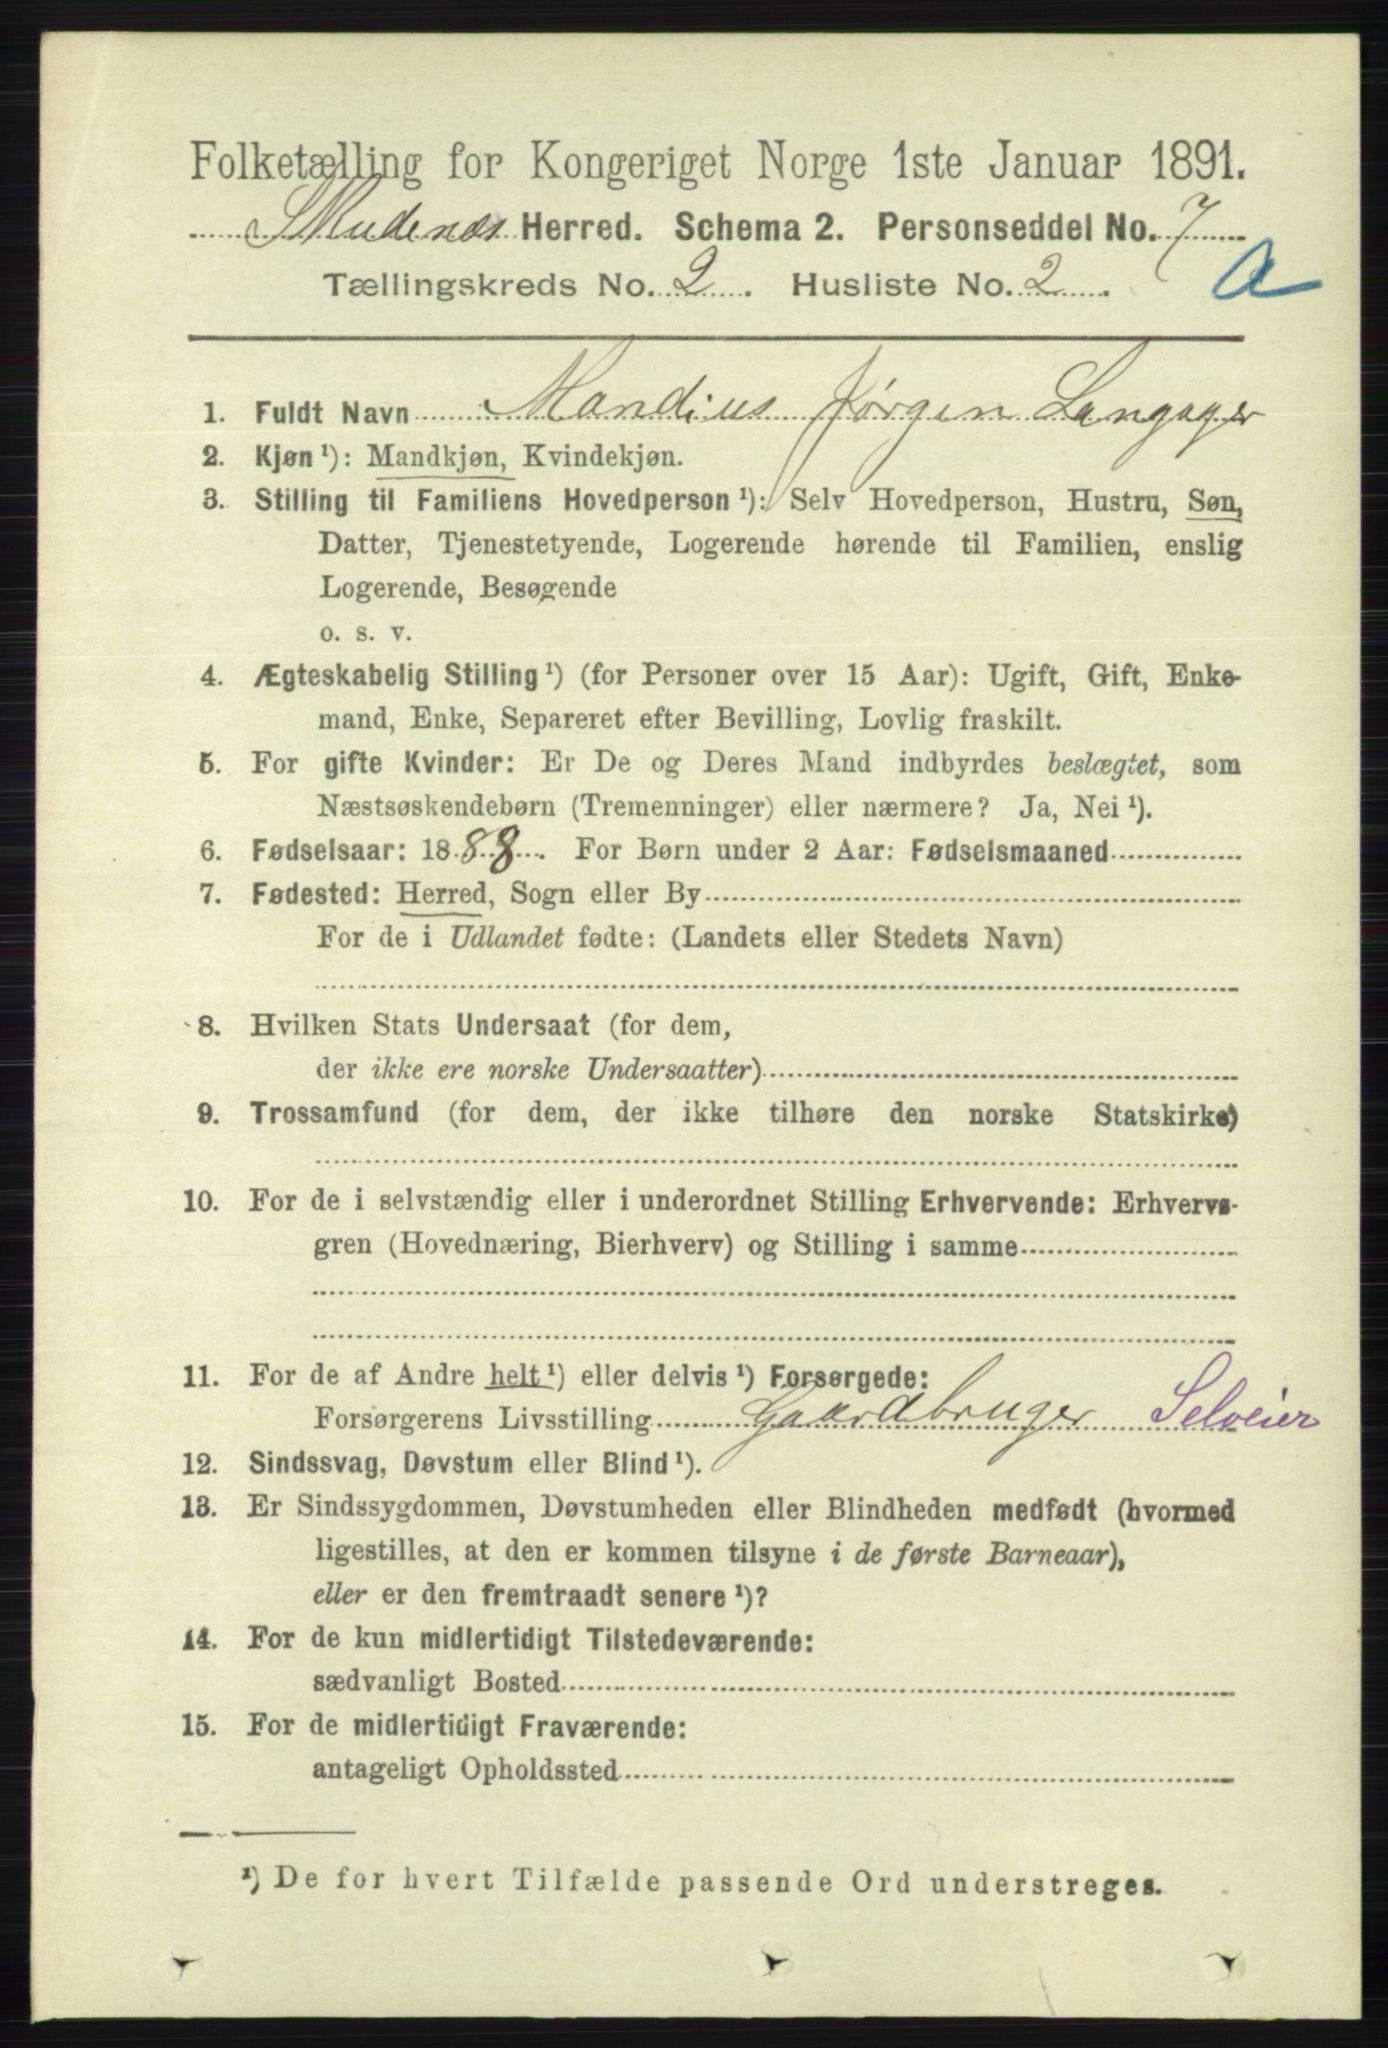 Folketælling for Kongeriget Norge 1ste Januar 1891.
Skudenæs Herred. Schema 2. Personseddel No. 7
Tællingskreds No. 2. Husliste No. 2. a
1. Fuldt Navn Mandius Jørgen Langager
2. Kjøn ¹): Mandkjøn, Kvindekjøn.
3. Stilling til Familiens Hovedperson ¹): Selv Hovedperson, Hustru, Søn,
Datter, Tjenestetyende, Logerende hørende til Familien, enslig
Logerende, Besøgende
o. s. v.
4. Ægteskabelig Stilling ¹) (for Personer over 15 Aar): Ugift, Gift, Enke-
mand, Enke, Separeret efter Bevilling, Lovlig fraskilt.
5. For gifte Kvinder: Er De og Deres Mand indbyrdes beslægtet, som
Næstsøskendebørn (Tremenninger) eller nærmere? Ja, Nei ¹).
6. Fødselsaar: 1888. For Børn under 2 Aar: Fødselsmaaned
7. Fødested: Herred, Sogn eller By
For de i Udlandet fødte: (Landets eller Stedets Navn)
8. Hvilken Stats Undersaat (for dem,
der ikke ere norske Undersaatter)
9. Trossamfund (for dem, der ikke tilhøre den norske Statskirke)
10. For de i selvstændig eller i underordnet Stilling Erhvervende: Erhvervs-
gren (Hovednæring, Bierhverv) og Stilling i samme
11. For de af Andre helt ¹) eller delvis ¹) Forsørgede:
Forsørgerens Livsstilling Gaardbruger Selveier
12. Sindssvag, Døvstum eller Blind ¹).
13. Er Sindssygdommen, Døvstumheden eller Blindheden medfødt (hvormed
ligestilles, at den er kommen tilsyne i de første Barneaar),
eller er den fremtraadt senere ¹)?
14. For de kun midlertidigt Tilstedeværende:
sædvanligt Bosted
15. For de midlertidigt Fraværende:
antageligt Opholdssted
¹) De for hvert Tilfælde passende Ord understreges.